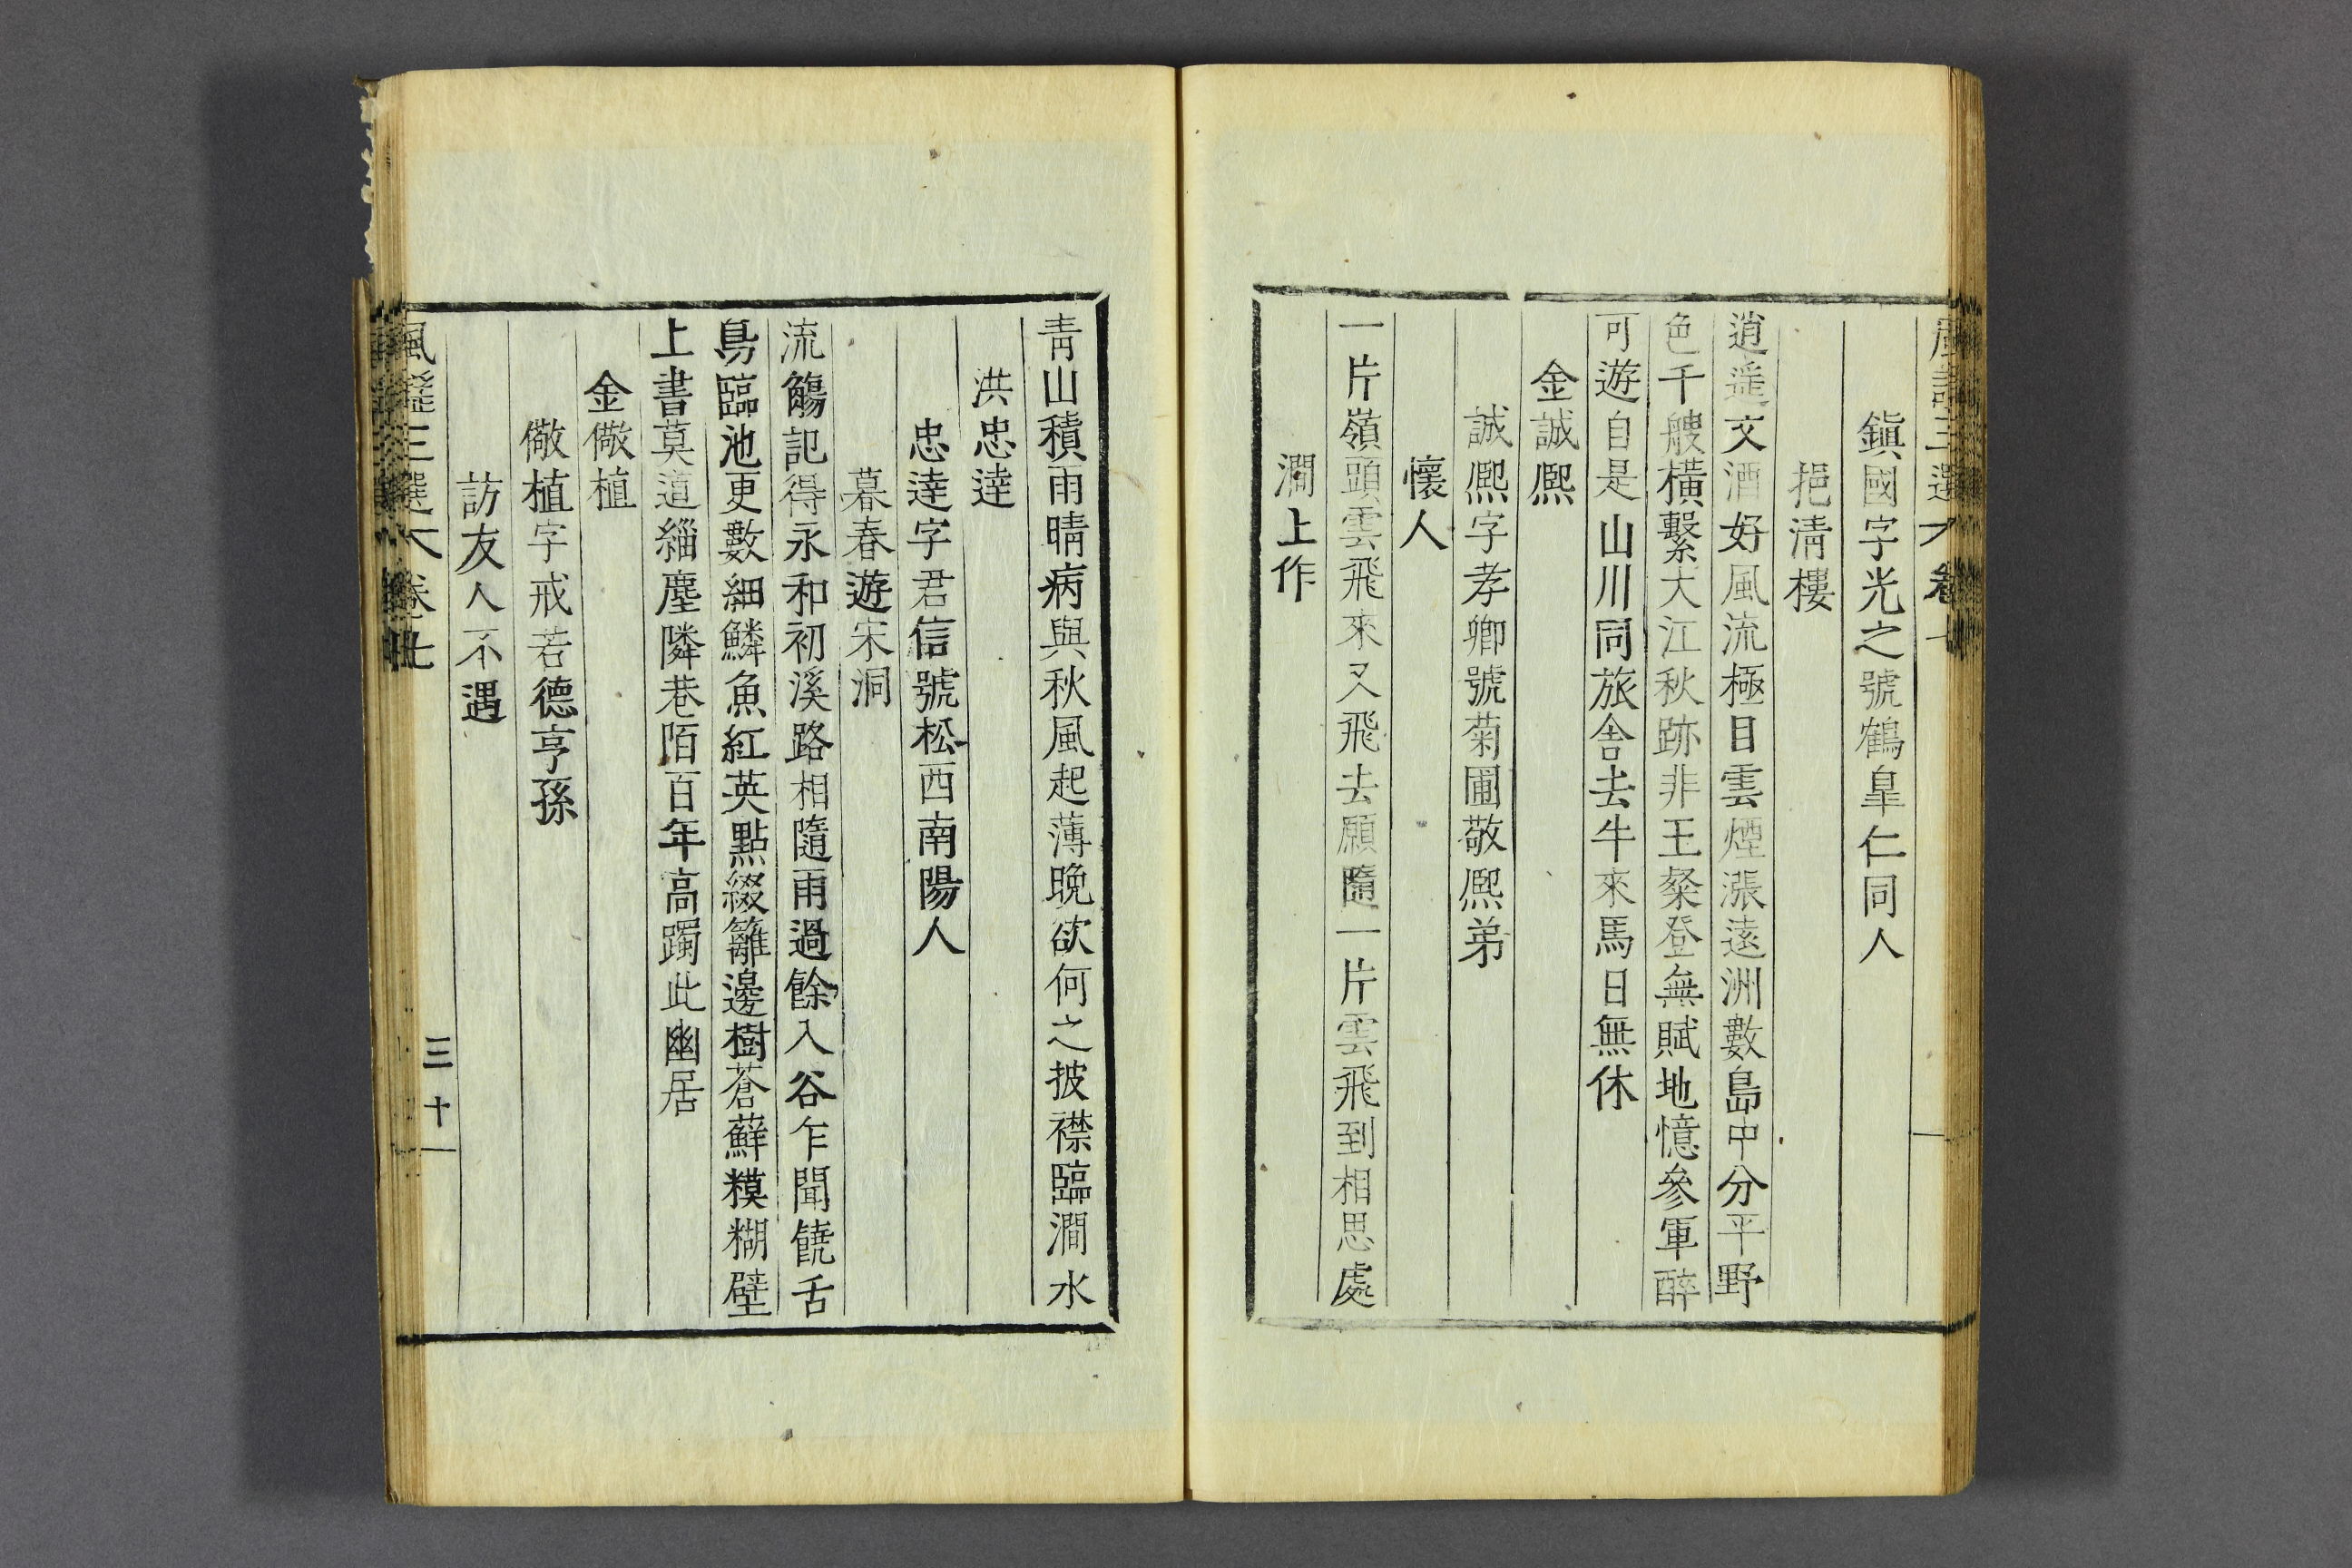 鎭國字光之號鶴臯仁同人
挹淸樓
逍遥文酒好風流極目雲煙漲遠洲數島中分平野
色千艘橫繫大江秋跡非王粲登無賦地憶參軍醉
可遊自是山川同旅舍去牛來馬日無休
金誠熙
誠熙字孝卿號菊圃敬熙弟
懷人
一片嶺頭雲飛來又飛去願隨一片雲飛到相思處
澗上作
靑山積雨晴病與秋風起薄晩欲何之披襟臨澗水
洪忠達
忠達字君信號松西南陽人
暮春遊宋洞
流觴記得永和初溪路相隨雨過餘入谷乍聞饒舌
鳥臨池更數細鱗魚紅英點綴籬邊樹蒼蘚糢糊壁
上書莫道緇塵隣巷陌百年高躅此幽居
金儆植
儆植字戒若德亨孫
訪友人不遇
風謠三選 卷七
三十